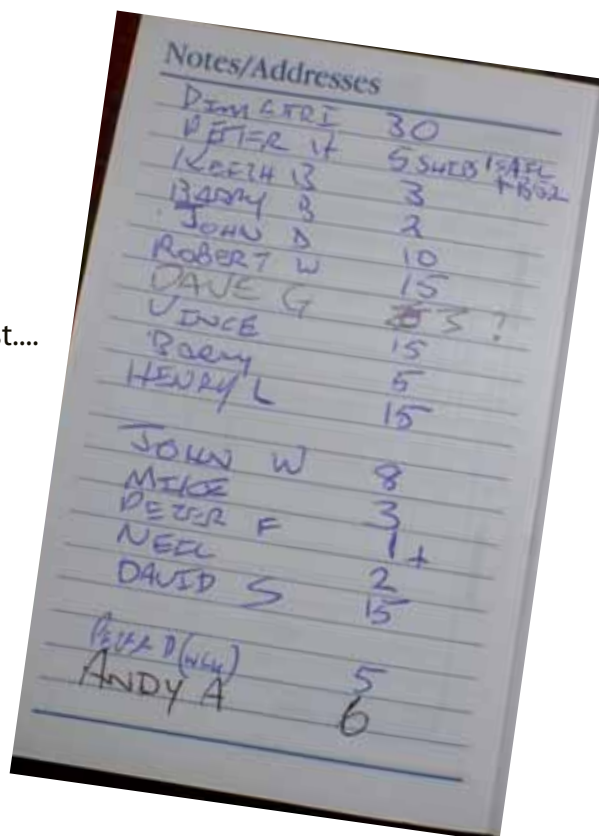 st....
Notes/Addresses
DIMITRI 30
PETER H 5 SUIB
KEITH B 3
BARRY B 2
JOHN D 10
ROBERT W 15
DAVE G 3 ?
VINCE 15
Barry 5
HENRY L 15
JOHN W 8
MIKE 3
PETER F 1+
NEIL 2
DAVID S 15
PETER D 5
ANDY A 6